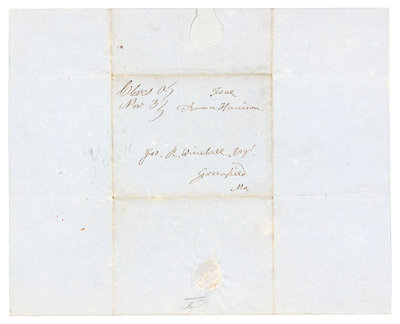 Cleves O.
Nov 3
Free
Anna Harrison
Jos. R. Winchell, Esqr.
Greenfield
Mo